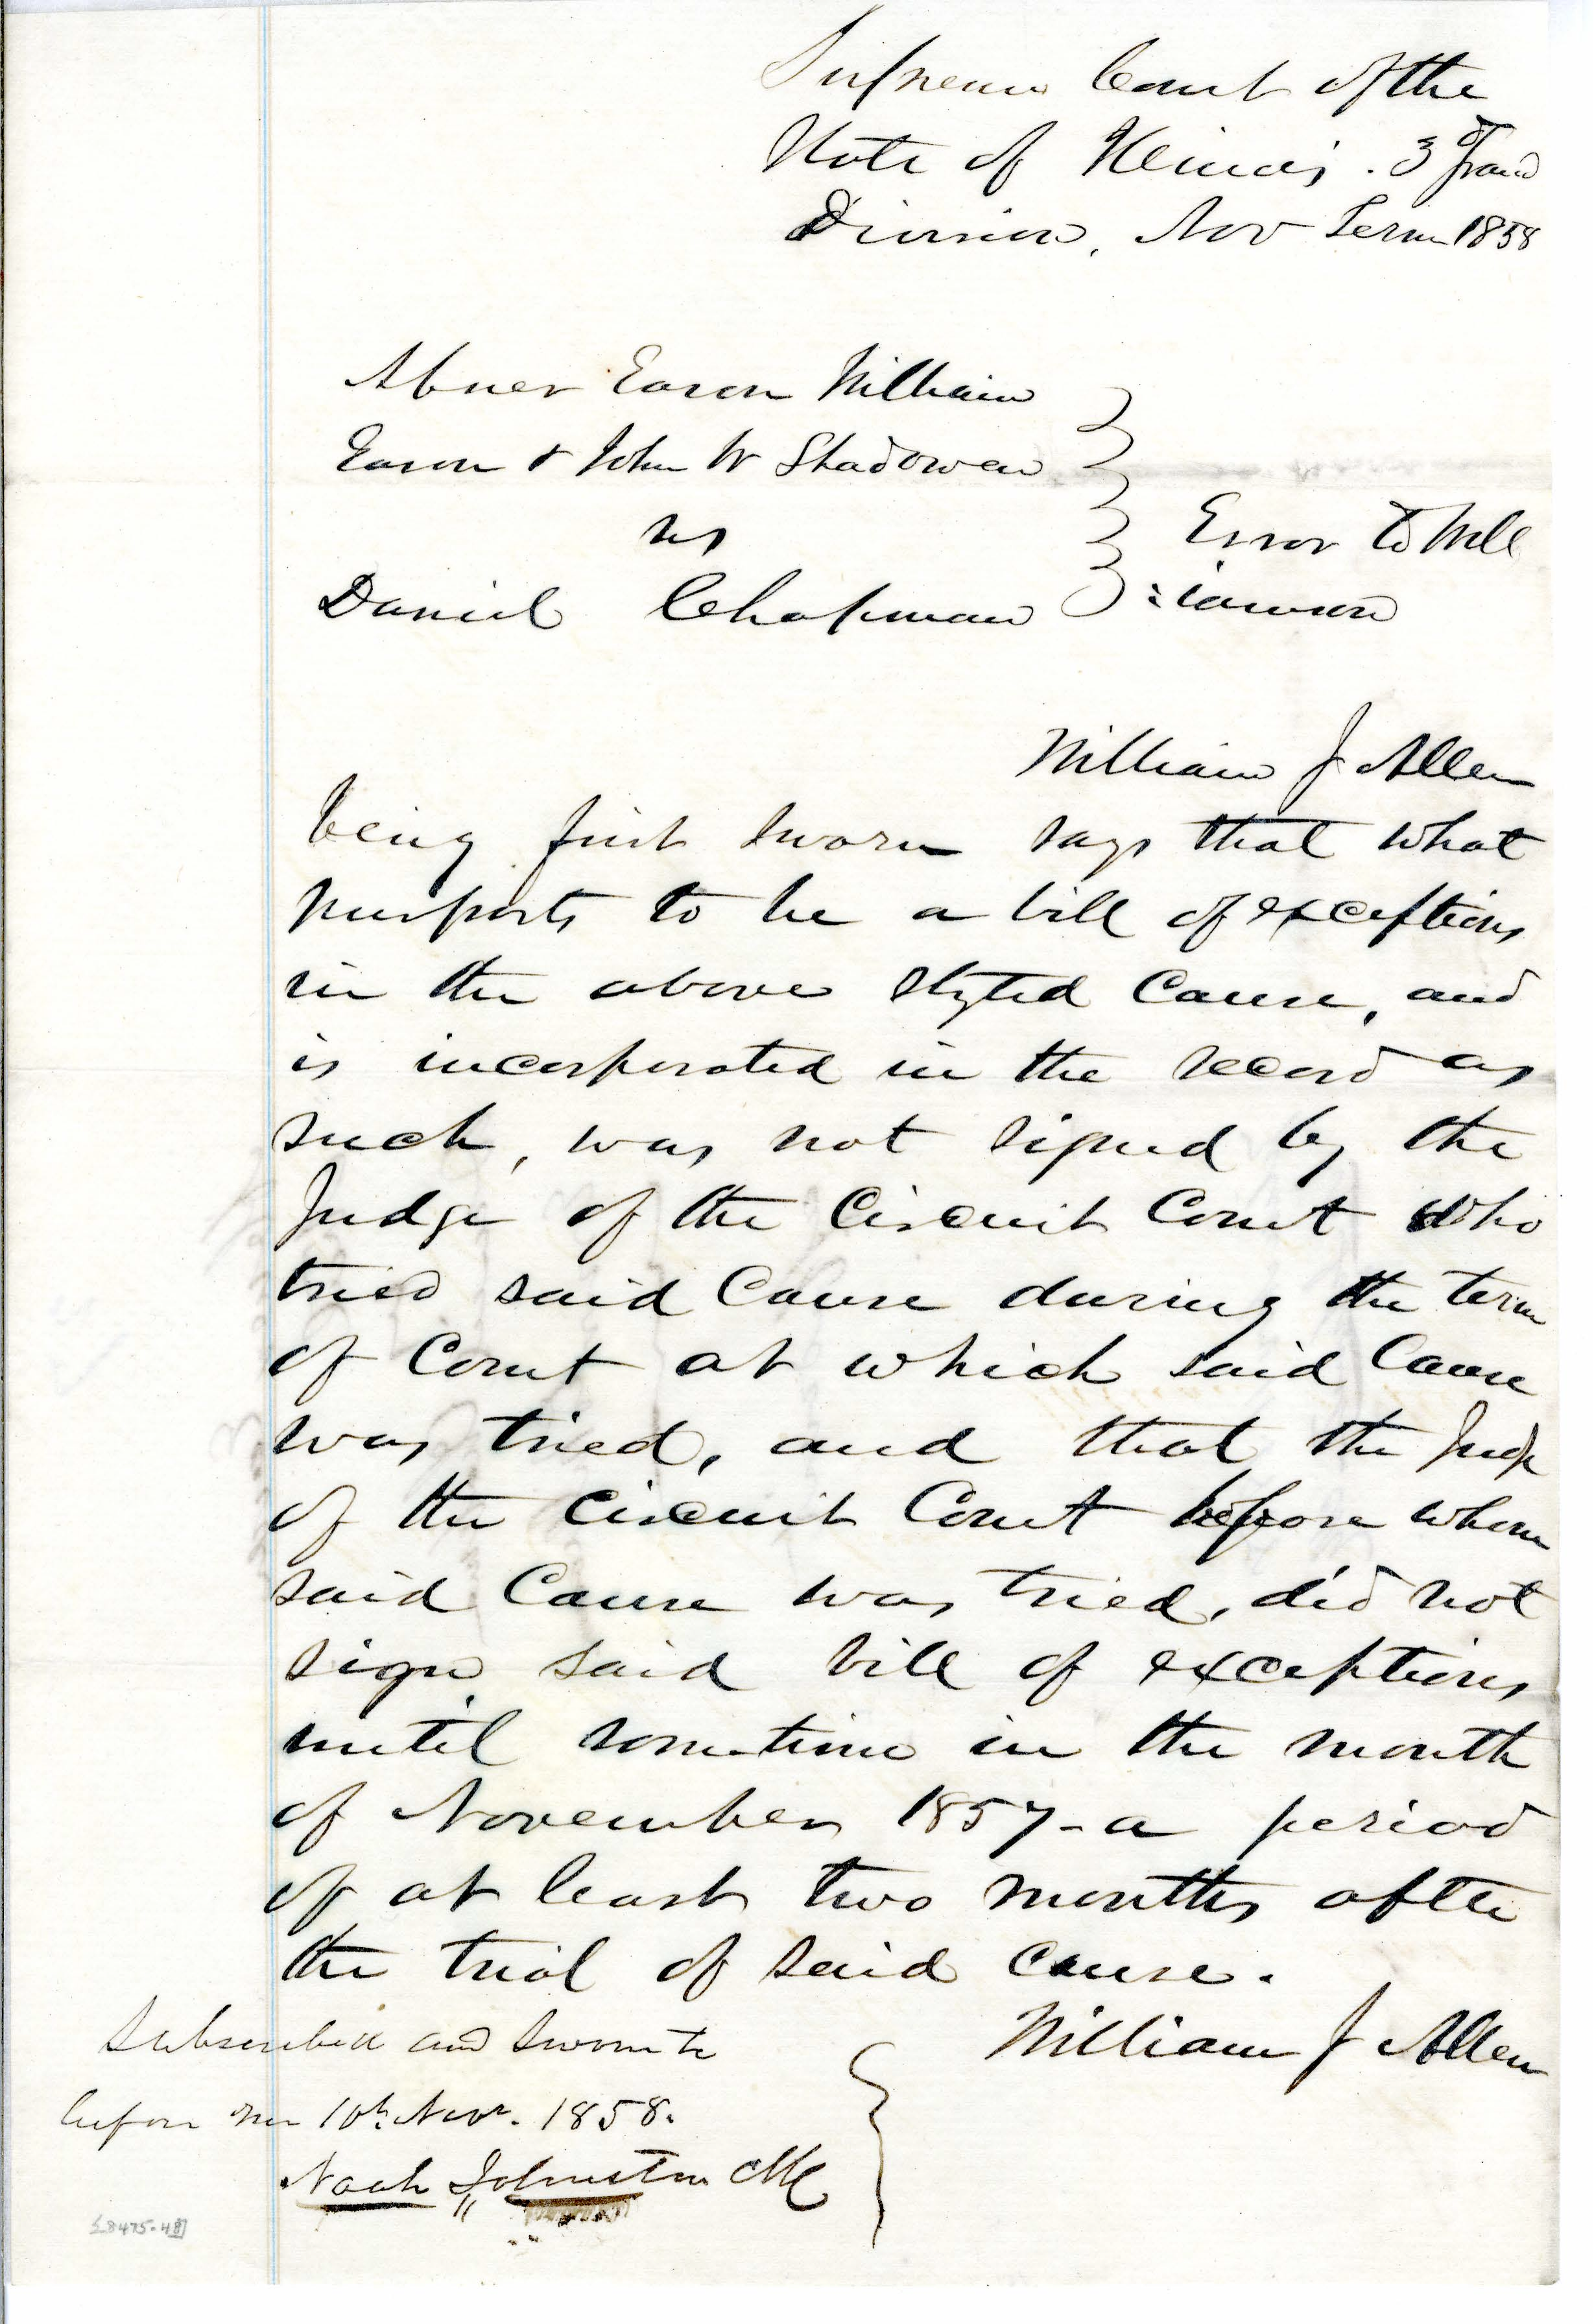 Supreme Court of the
State of Illinois. 3d Grand
Division, Nov Term 1858
Abner Eason William
Eason & John W Shadowen
vs
Daniel Chapman
Error to Will
:iamson
William J Allen
being first sworn says that what
purports to be a bill of exceptions
in the above styled Cause, and
is incorporated in the record as
such, was not signed by the
Judge of the Circuit Court who
tried said Cause during the term
of Court at which said Cause
was tried, and that the Judge
of the Circuit Court before whom
said Cause was tried, did not
sign said bill of exceptions
until sometime in the month
of November 1857 - a period
of at least two months after
the trial of said cause.
William J Allen
Subscribed and Sworn to
before me 10th Novr. 1858.
Noah Johnston Clk
[8475-48]